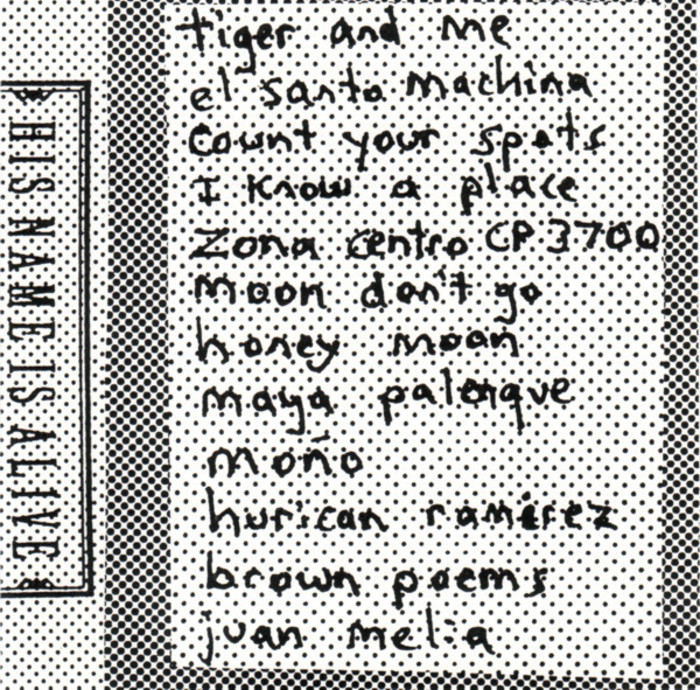 HIS NAME IS ALIVE
tiger and me
el santo machina
count your spots
I know a place
zona centro CP. 3700
moon don't go
honey moon
maya palenque
moño
hurican ramirez
brown poems
juan melia